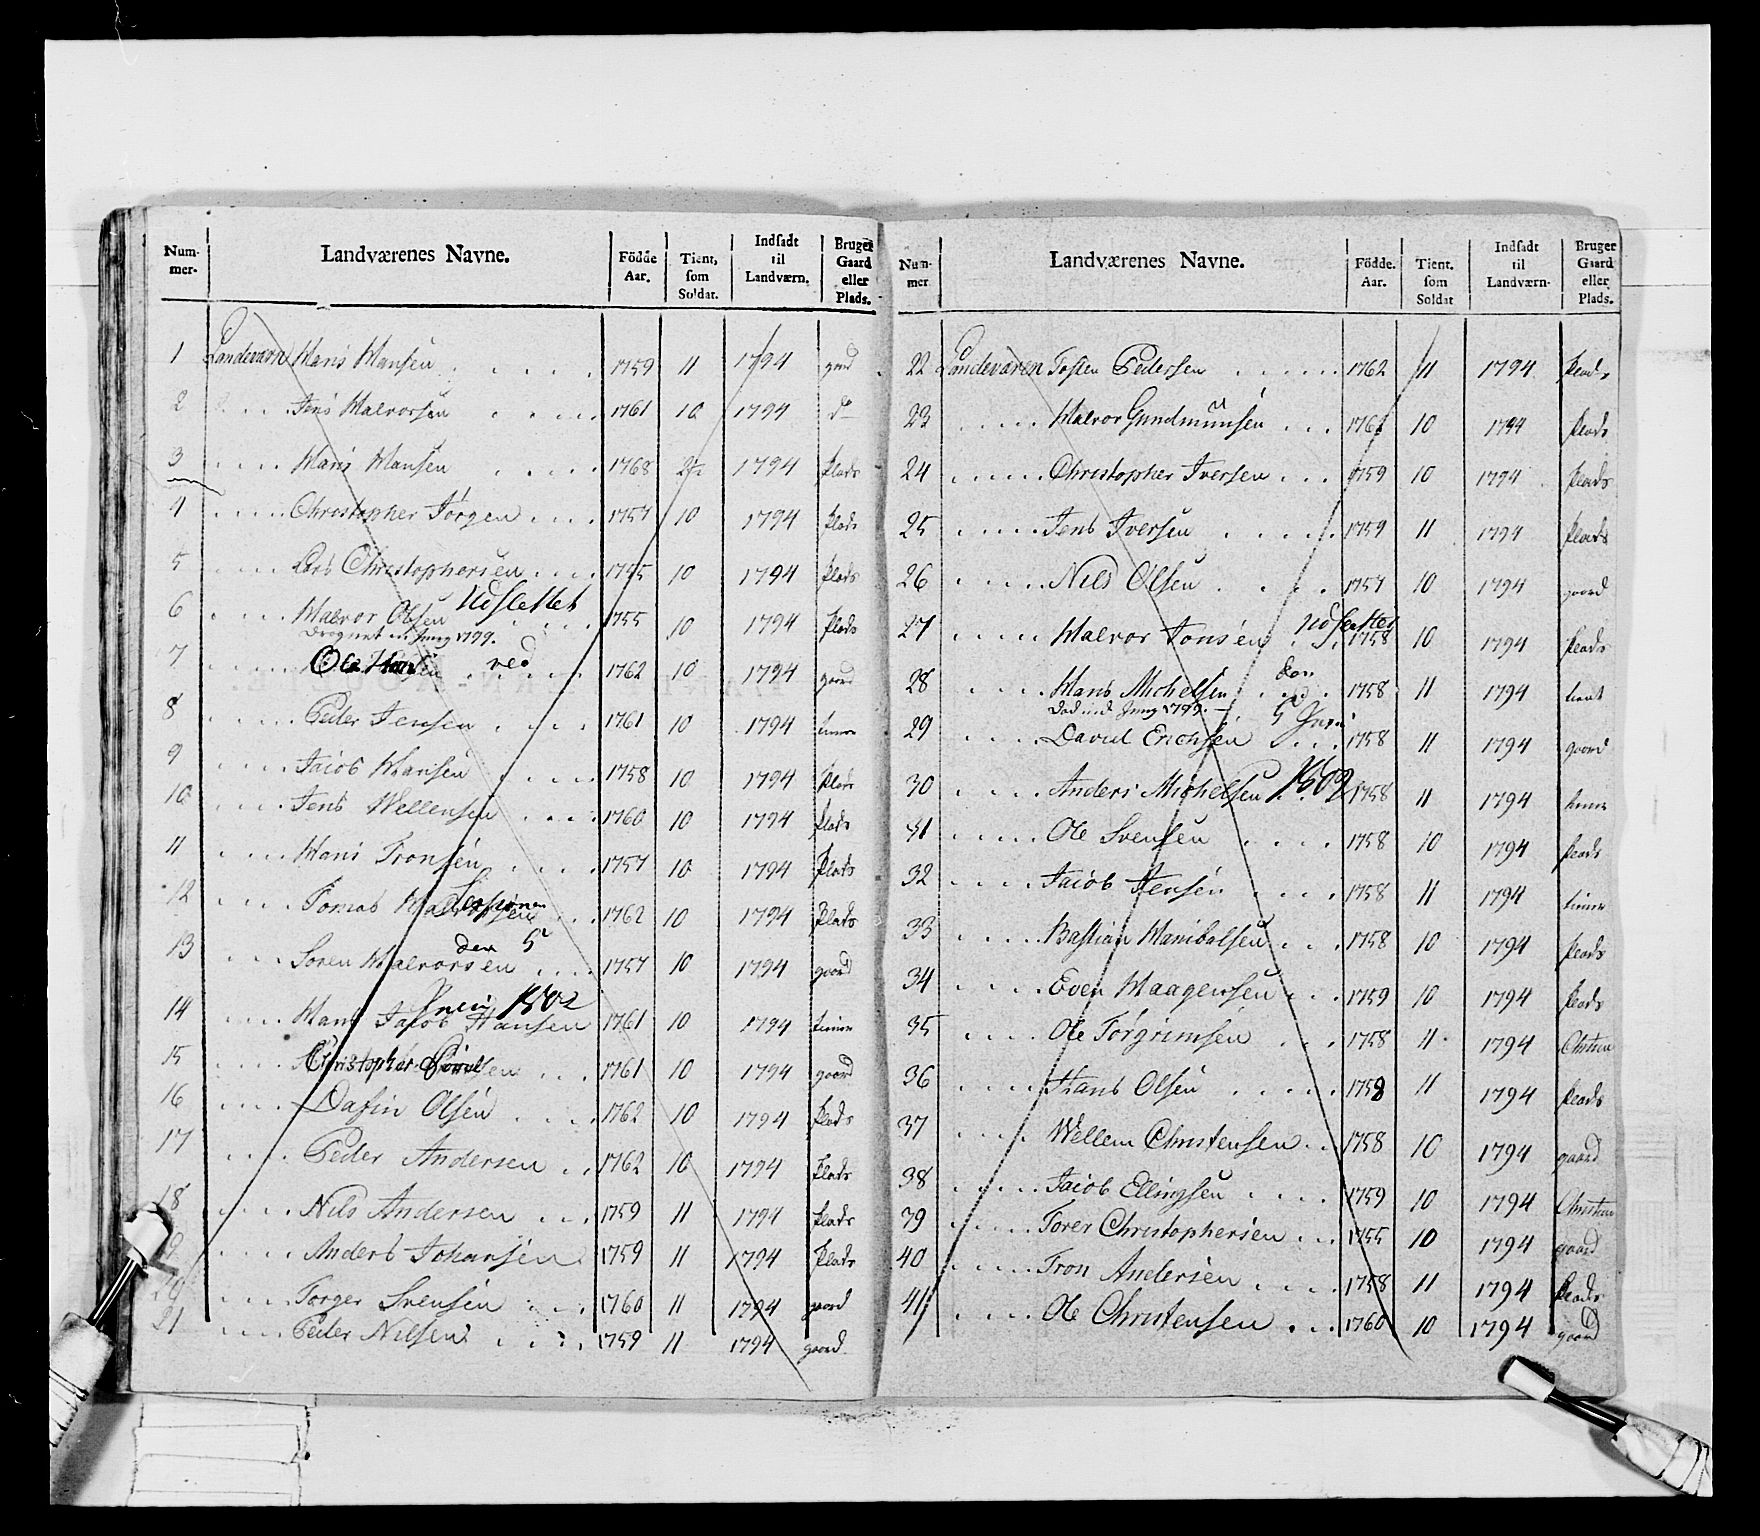 Num-mer- | Landværenes Navne. | Födde Aar. | Tient, som Soldat. | Indsadt til Landværn, | Bruger Gaard eller Plads.
1 Landeværn Hans Hansen 1759 11 1794 gaard
2 Jens Halvorsen 1761 10 1794 do
3 Hans Hansen 1768 1794 Plads
4 Christopher Jörgen 1757 10 1794 Plads
5 Lars Christophersen 10 1794 Plads
6 Halvor Olsen Udslettet 1755 10 1794 Plads
1799.
7 Ole Hansen ved 1762 10 1794 gaard
8 Peder Jensen 1761 10 1794
9 Jacob Hansen 1758 10 1794 Plads
10 Jens Wellensen 1760 10 1794 Plads
11 Hans Tronsen 1757 10 1794 Plads
12 Tomas Halvorsen Sessionen 1762 10 1794 Plads
13 Soren Halvorsen den 5 1757 10 1794 gaard
14 Hans Jacob Hansen Juni 1802 1761 10 1794
15 Christopher 1761 10 1794 gaard
16 Dafin Olsen 1762 10 1794 Plads
17 Peder Andersen 1762 10 1794 Plads
18 Nils Andersen 1759 11 1794 Plads
19 Anders Johansen 1759 11 1794 Plads
20 Torger Svensen 1760 11 1794 gaard
21 Peder Nilsen 1759 11 1794 gaard
Num-mer | Landværenes Navne. | Födde. Aar. | Tient. som Soldat | Indsadt til Landværn- | Bruger Gaard eller Plads.
22 Landeværen Tosten Pedersen 1762 11 1794 Plads
23 Halvor Gundmunsen 10 1794 Plads
24 Christopher Iversen 1759 10 1794 Plads
25 Jens Iversen 1759 11 1794 Plads
26 Nils Olsen 1757 10 1794 gaard
27 Halvor Jonsen Udslettet 1758 10 1794 Plads
28 Hans Michelsen den 1758 11 1794
Död ind Juny 1799.
29 David Erichsen 5 Juni 1758 11 1794 gaard
30 Anders Michelsen 1802 1758 11 1794
31 Ole Svensen 1758 10 1794 Plads
32 Jacob Jensen 1758 11 1794
33 Bastian Hanibalsen 1758 10 1794 Plads
34 Even Haagensen 1759 10 1794 Plads
35 Ole Torgrimsen 1758 11 1794
36 Hans Olsen 1758 11 1794 Plads
37 Wellem Christensen 1758 10 1794 gaard
38 Jacob Ellingsen 1759 10 1794
39 Torer Christophersen 1755 10 1794 gaard
40 Tron Andersen 1758 11 1794 Plads
41 Ole Christensen 1760 10 1794 gaard